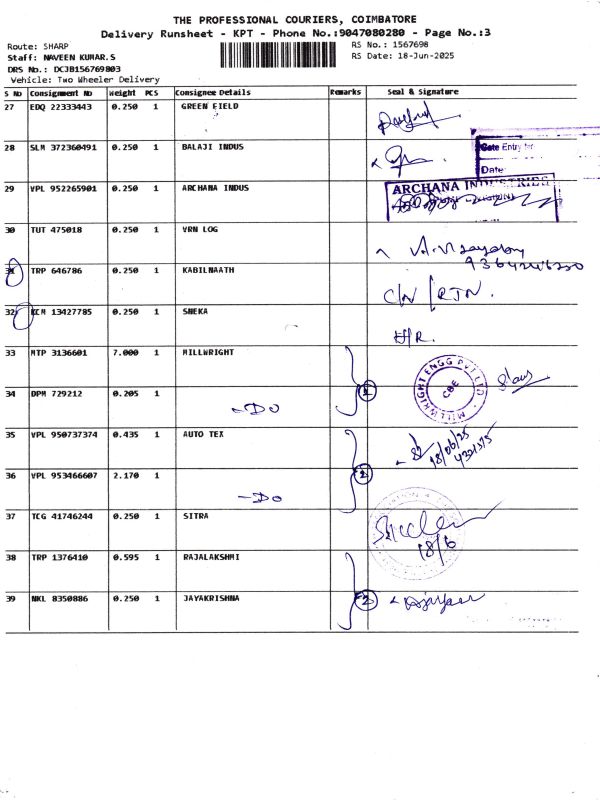 THE PROFESSIONAL COURIERS, COIMBATORE
Delivery Runsheet - KPT - Phone No.:9047080280 - Page No.:3
Route: SHARP
RS No.: 1567698
Staff: NAVEEN KUMAR.S
RS Date: 18-Jun-2025
DRS No.: DCJB156769803
Vehicle: Two Wheeler Delivery
S No Consignment No Weight PCS Consignee Details Remarks Seal & Signature
27 EDQ 22333443 0.250 1 GREEN FIELD
28 SLM 372360491 0.250 1 BALAJI INDUS
Gate Entry
Date
29 VPL 952265901 0.250 1 ARCHANA INDUS
ARCHANA INDUSTRIES
30 TUT 475018 0.250 1 VRN LOG
31 TRP 646786 0.250 1 KABILNAATH
C/N / RTN.
32 KCM 13427785 0.250 1 SNEKA
H/R.
33 MTP 3136601 7.000 1 MILLWRIGHT
MILLWRIGHT ENGG PVT LTD
CBE
34 DPM 729212 0.205 1
-DO
35 VPL 950737374 0.435 1 AUTO TEX
18/06/25
36 VPL 953466607 2.170 1
-DO
2
37 TCG 41746244 0.250 1 SITRA
18/6
38 TRP 1376410 0.595 1 RAJALAKSHMI
39 NKL 8350886 0.250 1 JAYAKRISHNA
2